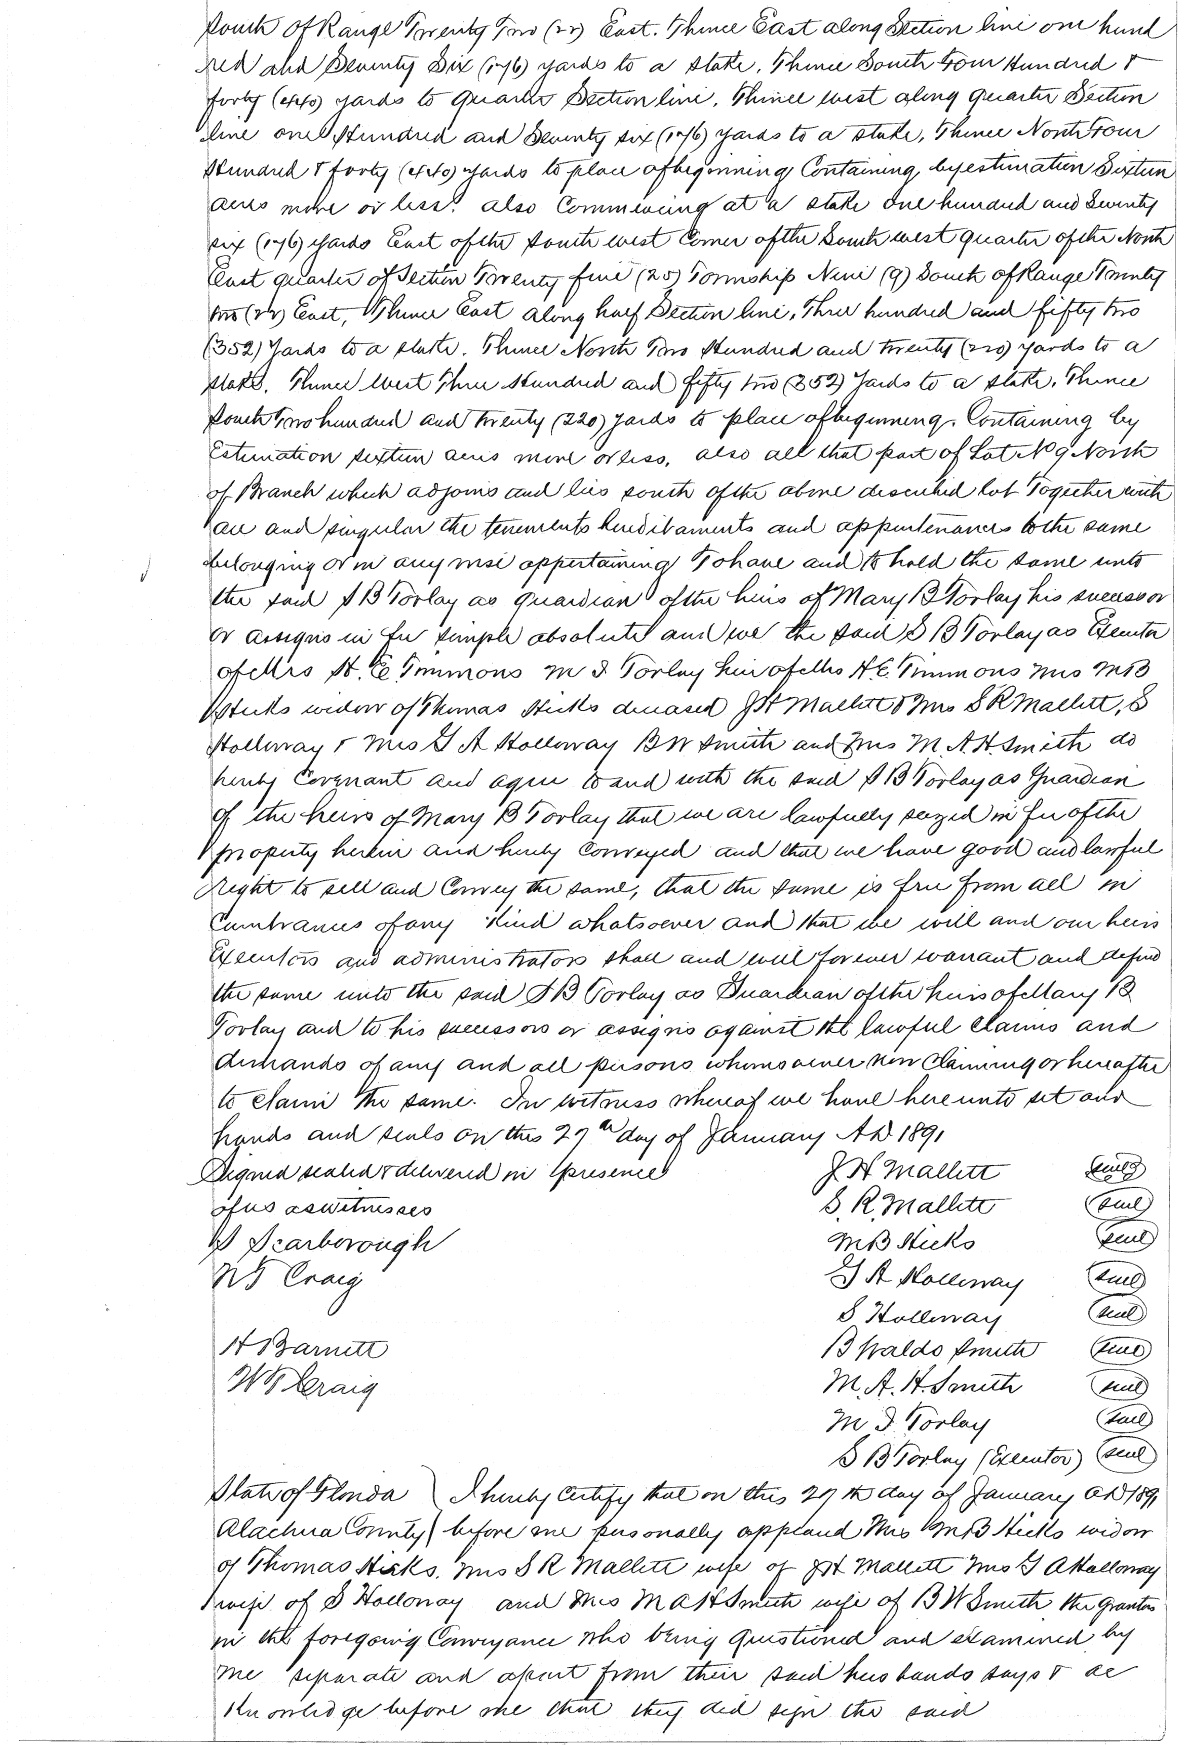 South of Range Twenty Two (22) East. Thence East along Section line one hund
red and Seventy Six (176) yards to a stake, Thence South Four Hundred &
forty (440) yards to quarter Section line, Thence west along quarter Section
line one Hundred and Seventy six (176) yards to a stake, Thence North Four
Hundred & forty (440) yards to place of beginning Containing by estimation Sixteen
acres more or less. also Commencing at a stake one hundred and Seventy
six (176) yards East of the South west Corner of the South west quarter of the North
East quarter of Section Twenty five (25) Township Nine (9) South of Range Twenty
two (22) East, Thence East along half Section line, Three hundred and fifty two
(352) Yards to a stake. Thence North Two Hundred and twenty (220) yards to a
stake. Thence West Three Hundred and fifty two (352) Yards to a stake, Thence
South Two hundred and twenty (220) yards to place of beginning. Containing by
Estimation sixteen acres more or less, also all that part of Lot No 9 North
of Branch which adjoins and lies south of the above described lot Together with
all and singular the tenements hereditaments and appurtenances to the same
belonging or in any wise appertaining To have and to hold the same unto
the said S B Torlay as guardian of the heirs of Mary B Torlay his successor
or assigns in fee simple absolute and we the said S B Torlay as Executor
of Mrs H. E. Timmons M I Torlay heir of Mrs H. E. Timmons Mrs M B
Hicks widow of Thomas Hicks deceased J H Mallett & Mrs S R Mallett, S
Holloway & Mrs G A Holloway B W Smith and Mrs M. A. H. Smith do
hereby Covenant and agree to and with the said S B Torlay as Guardian
of the heirs of Mary B Torlay that we are lawfully seized in fee of the
property herein and hereby Conveyed and that we have good and lawful
Right to sell and Convey the same, that the same is free from all in
Cumbrances of any Kind whatsoever and that we will and our heirs
Executors and administrators shall and will forever warrant and defend
the same unto the said S B Torlay as Guardian of the heirs of Mary B
Torlay and to his successors or assigns against the lawful Claims and
demands of any and all persons whomsoever now Claiming or hereafter
to claim the same. In witness whereof we have here unto set our
hands and seals on this 27th day of January A D 1891
Signed sealed & delivered in presence J H Mallett (seal)
of us as witnesses S. R. Mallett (seal)
Scarborough M B Hicks (seal)
W T Craig G A Holloway (seal)
S Holloway (seal)
H Barnett B Waldo Smith (seal)
W T Craig M. A. H. Smith (seal)
M I Torlay (seal)
S B Torlay (Executor) (seal)
State of Florida ) I hereby Certify that on this 27th day of January A D 1891
Alachua County ) before me personally appeared Mrs M B Hicks widow
of Thomas Hicks. Mrs S R Mallett wife of J H Mallett Mrs G A Holloway
wife of S Holloway and Mrs M A H Smith wife of B W Smith the grantors
in the foregoing Conveyance who being questioned and examined by
me separate and apart from their said husbands says & ac
Knowledge before me that they did sign the said